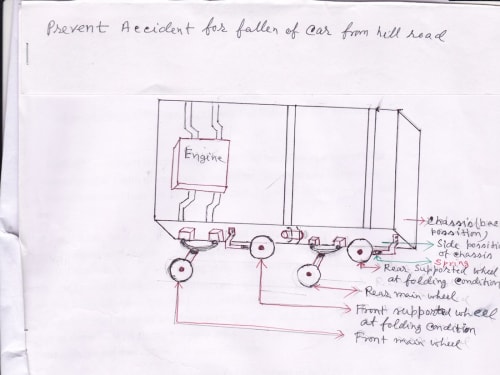 Prevent Accident for fallen of car from hill road
Engine
Chassis (back
possition)
Side possition
of chassis
Spring
Rear Supported wheel
at folding condition
Rear main wheel
Front supported wheel
at folding condition
Front main wheel